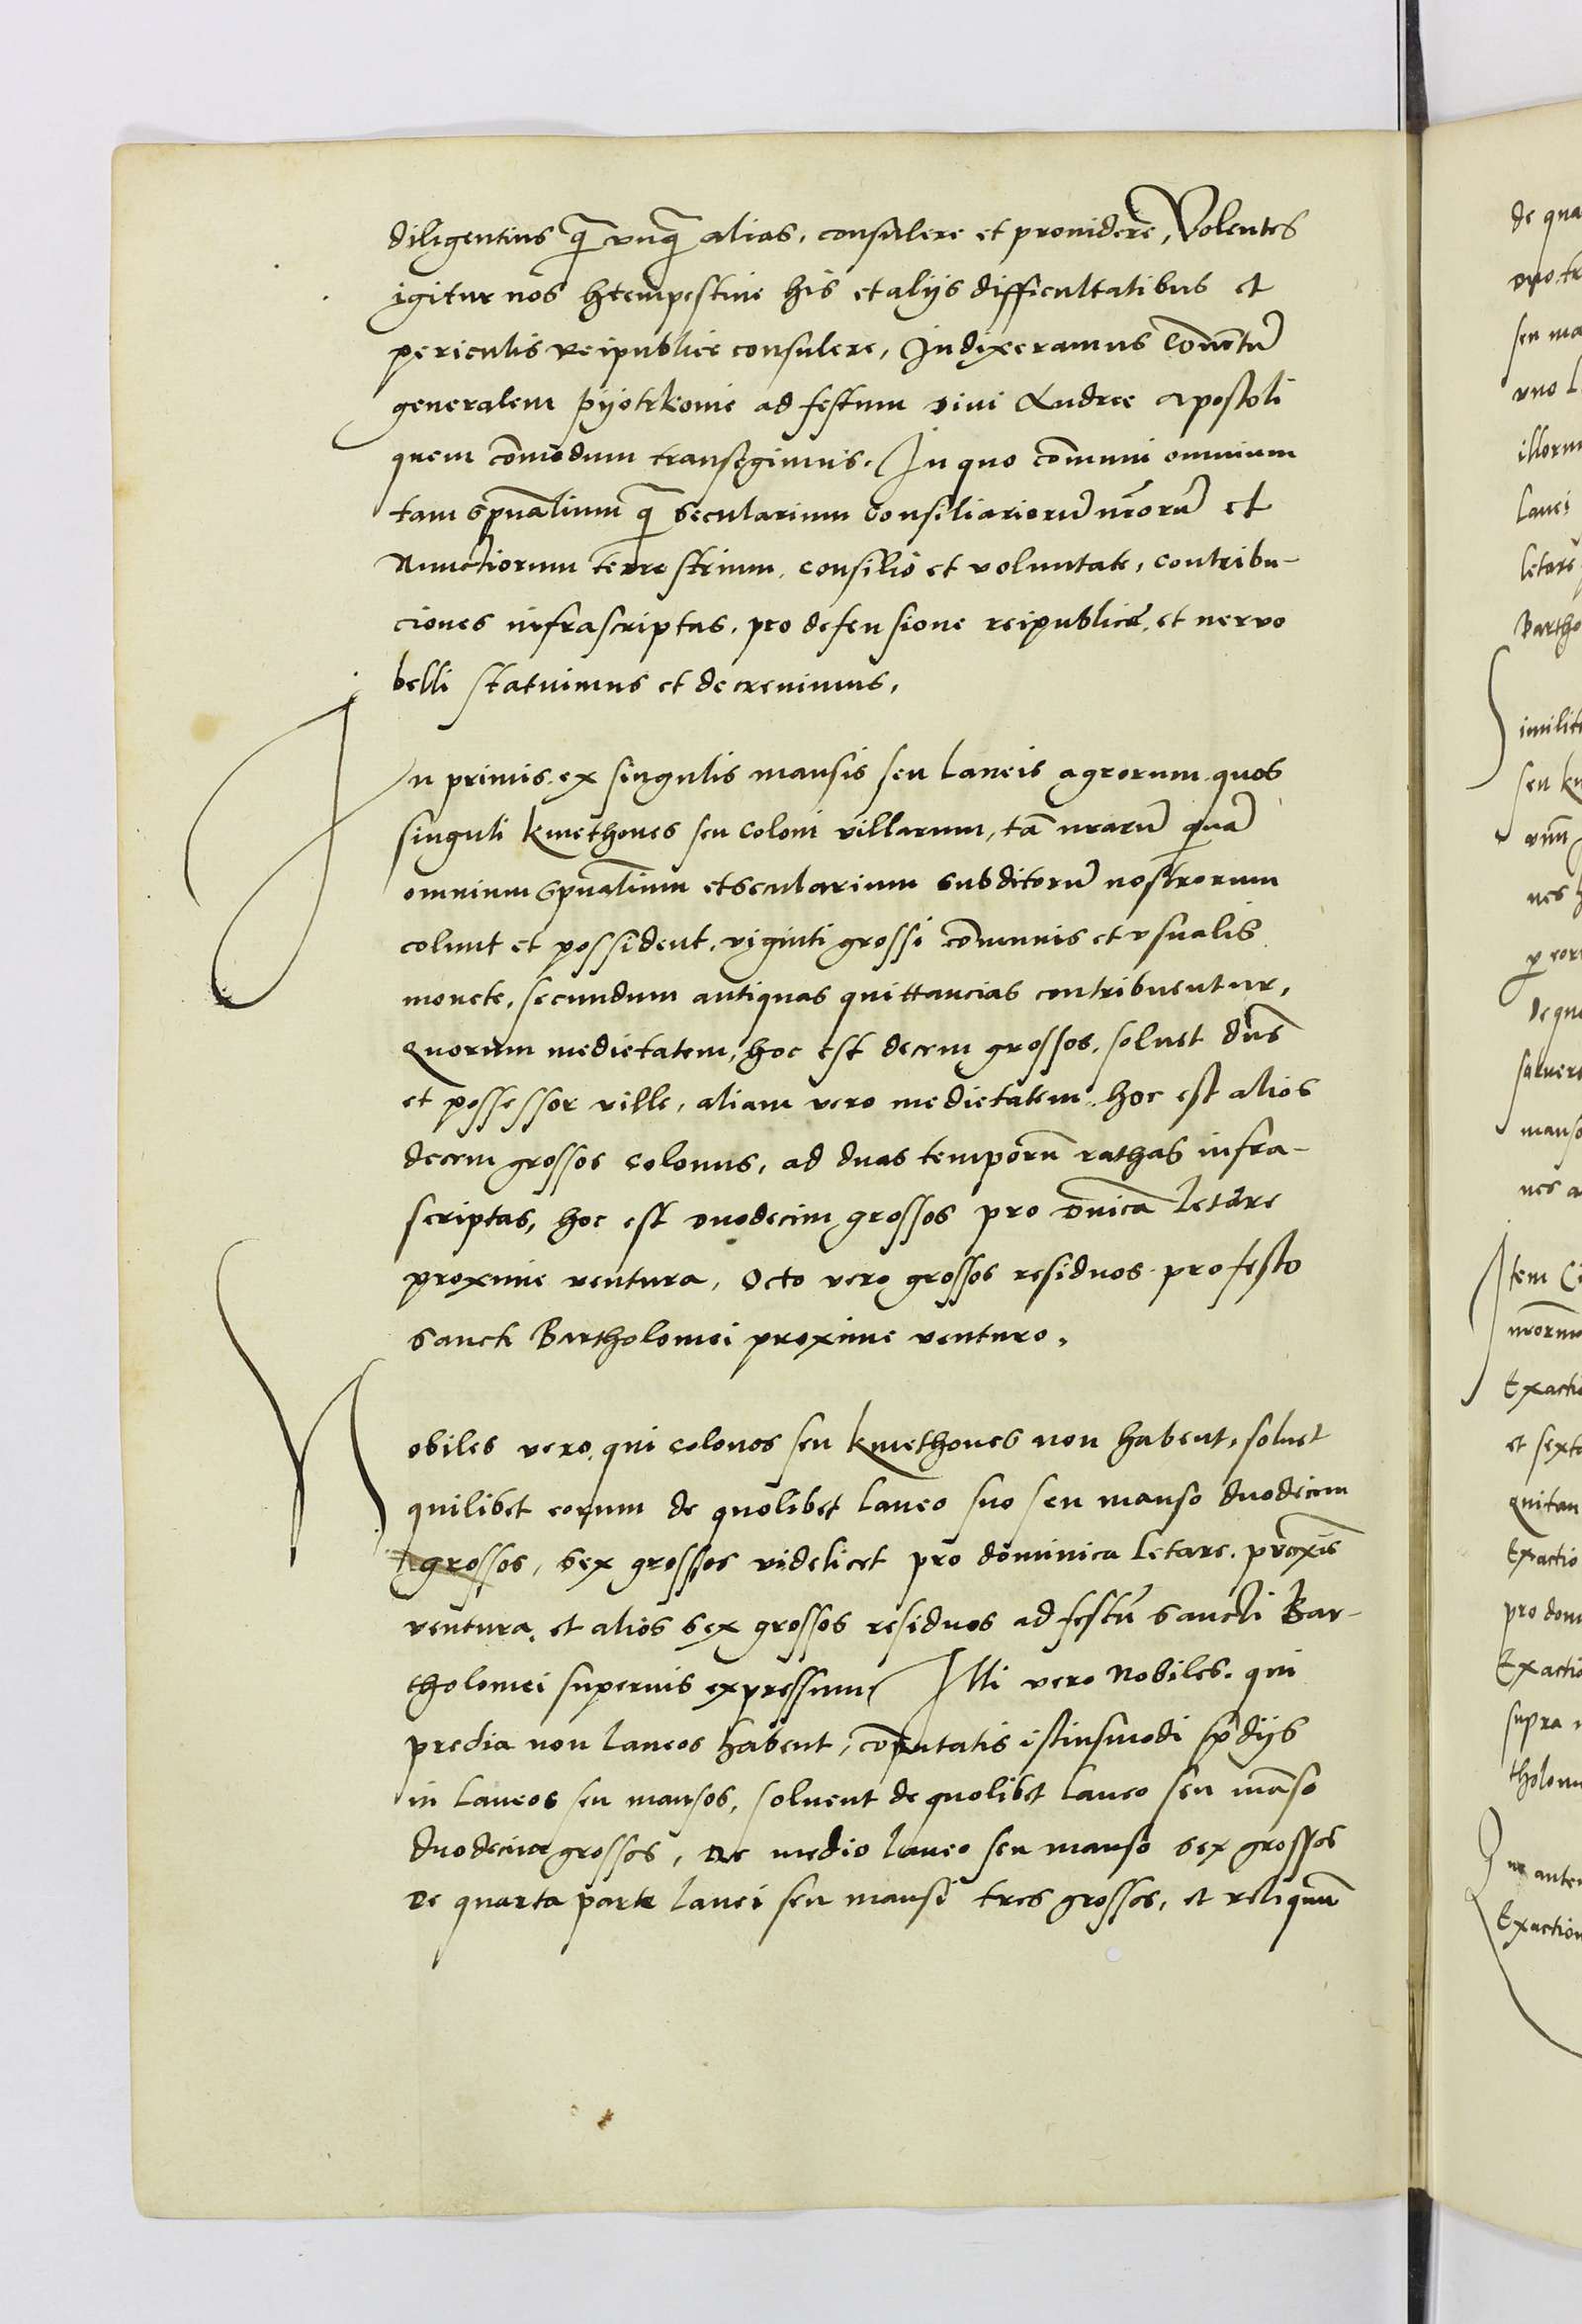 diligentius q̄ vnq̄ alias, consulere et prouidere, Volentes
igitur nos tempestiue his et aliis difficultatibus et
periculis reipublice consulere, Indixeramus Conuentū
generalem Pyotrkouie ad festum diui Andree apostoli
quem cōmodum transegimus. In quo cōmuni omnium
tam spūalium q̄ secularium Consiliariorū nr̄orū et
Nunctiorum terrestrium, consilio et voluntate, contribu-
ciones infrascriptas, pro defensione reipublice, et neruo
belli statuimus et decreuimus,
In primis, ex singulis mansis seu laneis agrorum, quos
singuli kmethones seu coloni villarum, tā nr̄arū quā
omnium spūalium et secularium subditorū nostrorum
colunt et possident, viginti grossi cōmunis et vsualis
monete, secundum antiquas quittancias contribuentur,
Quorum medietatem, hoc est decem grossos, soluet dn̄s
et possessor ville, aliam vero medietatem, hoc est alios
decem grossos colonus, ad duas temporū rathas infra-
scriptas, hoc est duodecim grossos pro dn̄ica letare
proxime ventura, Octo vero grossos residuos pro festo
Sancti Bartholomei proxime venturo,
Nobiles vero, qui colonos seu kmethones non habent, soluet
quilibet eorum de quolibet laneo suo seu manso duodecem
grossos, sex grossos videlicet pro dominica letare, proxīe
ventura, et alios sex grossos residuos ad festū sancti Bar-
tholomei superius expressum, Illi vero Nobiles, qui
predia non laneos habent, cōputatis istiusmodi prediis
in laneos seu mansos, soluent de quolibet laneo seu māso
duodecim grossos, de medio laneo seu manso sex grossos
de quarta parte lanei seu mansi tres grossos, et reliquū
de qua
seu ma
vno l
illorum
lanei
letare
Bartho
imilite
seu km
nes
de qu
soluere
manso
nes a
Item Ci
nr̄orum
Exactio
et sexto
quitan
Exactio
pro dom
Exactio
supra
tholom
Qui autem
Exaction